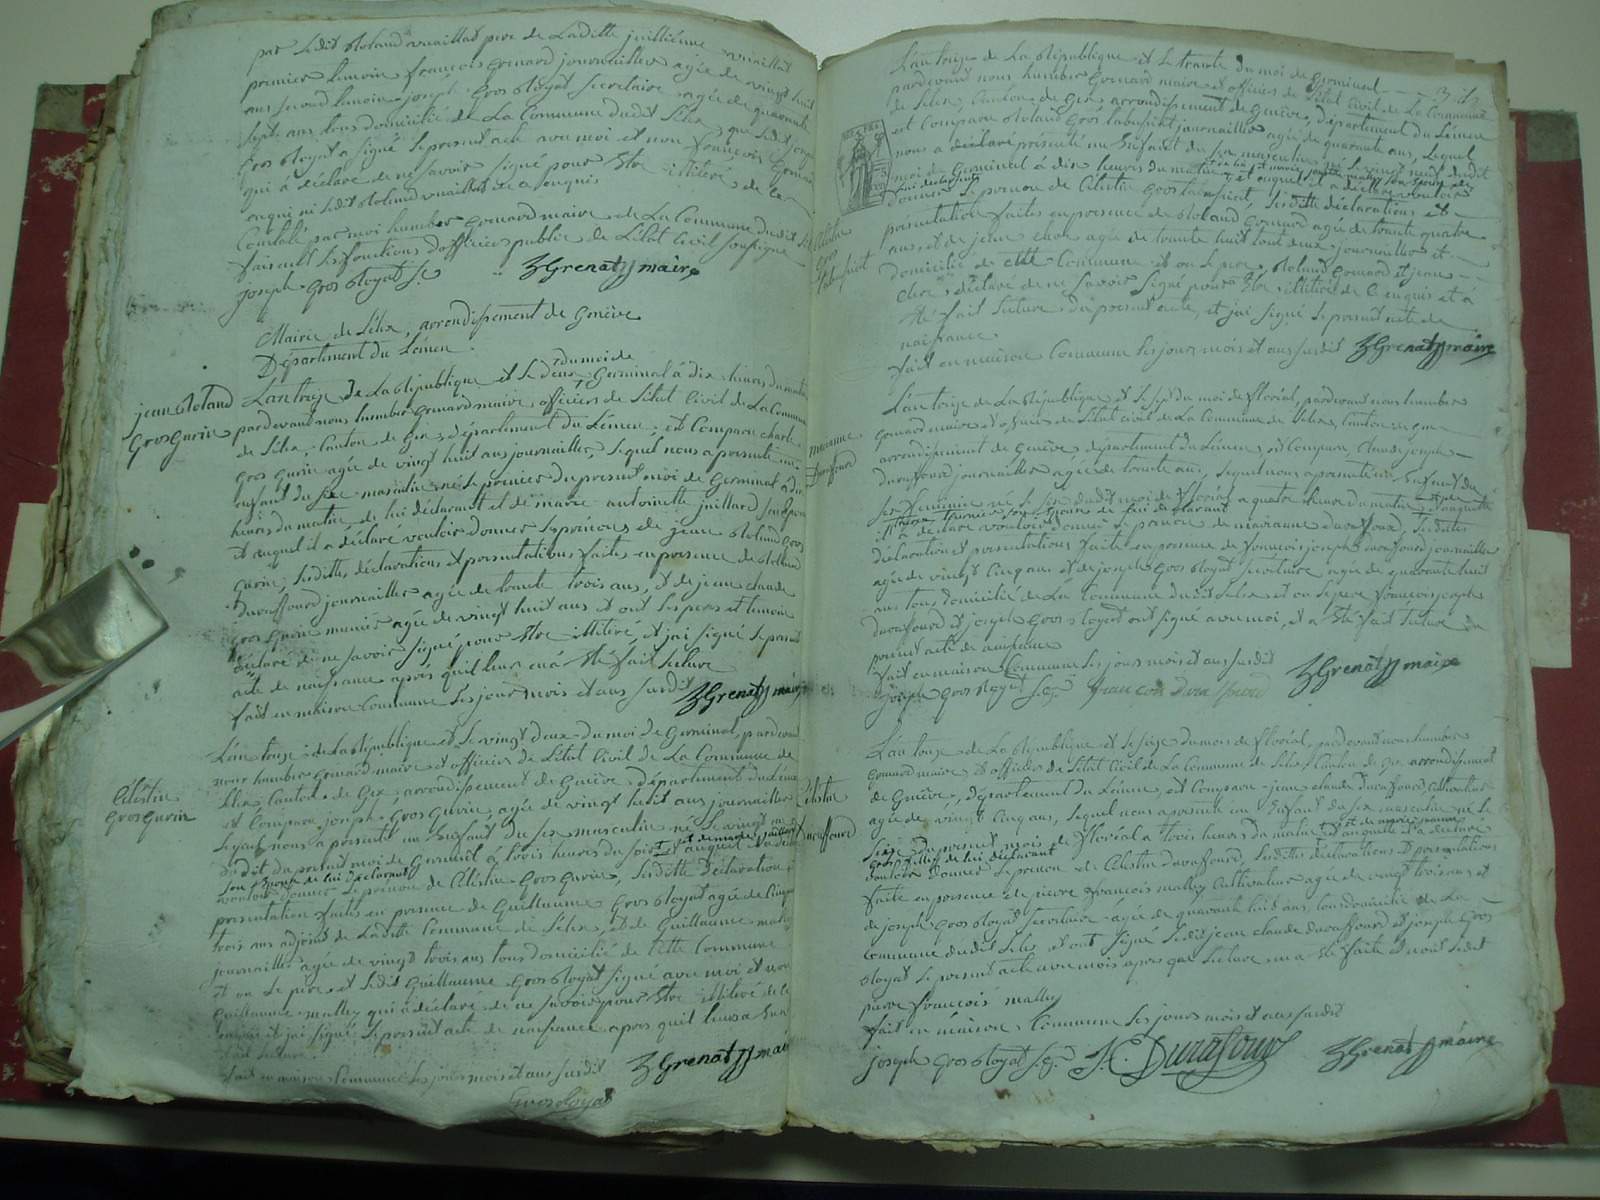 par ledit Roland vuaillat pere de Laditte jullienne vuaillat
premier temoin françois Grenard journaillier agée de vingt huit
ans second temoin joseph Gros Royat secretaire agée de quarante
sept ans tous domicilié de La Commune dudit Lelex, que ledit joseph
Gros Royat a signé Le present acte avec moi et non françois Grenard
qui à déclaré de ne savoir signé pour Etre illiteré, de ce
enqui ni ledit Roland vuaillat de ce enquis
Constaté par moi humber Grenard maire de La Commune dudit Lelex
faisant les fonctions d'officier public de L'Etat Civil soussigné
joseph Gros Royat S.re
hGrenard maire
Mairie de Lelex, arrondissement de Genève
Département du Léman
du moi de
jean Roland
Gros Gurin
L'an treize de La République et le deux Germinal à dix heures du matin
pardevant nous humber Grenard maire officier de L'Etat Civil de La Commune
de Lelex, Canton de Gex, département du Léman, est Comparu charle
Gros Gurin agée de vingt huit ans journaillier, Lequel nous a presenté un
enfant du sexe masculin né Le premier du present moi de Germinal à dix
heures du matin, de lui déclarant et de marie antoinette juillard son Epouse
et auquel il a déclaré vouloir donner Le prénom de jean Roland Gros
Gurin, Lesdittes déclarations et presentations faites en presence de Rolland
Duraffourd journaillier agée de trente trois ans, et de jean claude
Gros Gurin munier agée de vingt huit ans et ont Les pere et temoin
déclaré de ne savoir signé pour Etre illiteré, et j'ai signé Le present
acte de naissance après qu'il leur en à Eté fait Lecture
fait en maison Commune Les jour mois et ans susdit
hGrenard maire
Célestin
Gros Gurin
L'an treize de La République et le vingt deux du moi de Germinal, pardevant
nous humber Grenard maire et officier de L'Etat Civil de La Commune de
Lelex Canton de Gex, arrondissement de Genève, Département du Léman
est Comparu joseph Gros Gurin, agée de vingt huit ans journaillier
Lequel nous a presenté un Enfant du sexe masculin né Le vingt un
dudit du present moi de Germinal à trois heures du soir et auquel il a déclaré
son Epouse de lui déclarant
vouloir donner Le prénom de Célestin Gros Gurin, Lesdittes Déclaration et
presentation faites en presence de Guillaume Gros Royat agée de Cinquante
trois ans adjoint de Laditte Commune de Lelex, et de Guillaume mally
journaillier agée de vingt trois ans tous domicilié de Cette Commune
et on Le pere et Ledit Guillaume Gros Royat signé avec moi et non
Guillaume mally qui à déclaré de ne savoir pour Etre illiteré de ce
enquis et j'ai signé Le present acte de naissance apres qu'il leur a Eté
fait Lecture
fait en maison Commune Les jours mois et ans susdit
hGrenard maire
Gros Royat
L'an treize de La République et Le trente du moi de Germinal
pardevant nous humber Grenard maire et officier de L'Etat Civil de La Commune
de Lelex, Canton de Gex, arrondissement de Genève, département du Léman
est Comparu Roland Gros journaillier agée de quarante ans, Lequel
nous a déclaré présenté un Enfant du sexe masculin né Le vingt neuf dudit
moi de Germinal à dix heures du matin et auquel il a déclaré vouloir
donner Le prénom de Célestin Gros, Lesditte déclarations et
présentation faites en presence de Roland Grenard agée de trente quatre
ans, et de jean agée de trente huit tous deux journaillier et
domicilié de Cette Commune et on Le pere, Roland Grenard et jean
déclaré de ne savoir signé pour Etre illiteré de ce enquis et à
Eté fait Lecture du present acte, et j'ai signé Le present acte de
naissance
fait en maison Commune Les jours mois et ans susdit
hGrenard maire
Célestin
Gros
marianne
Duraffourd
L'an treize de La République et Le six du moi de floréal, pardevant nous humber
Grenard maire et officier de L'Etat civil de La Commune de Lelex, Canton de Gex
arrondissement de Genève, département du Léman, est Comparu, Claude joseph
Duraffourd journaillier agée de trente ans, Lequel nous a presenté un Enfant du
sexe féminin né Le six dudit moi de floréal a quatre heures du matin et auquelle
son Epouse de lui déclarant
il à déclaré vouloir donner Le prénom de marianne Duraffourd, Lesdittes
déclaration et presentations faite en presence de françois joseph Duraffourd journaillier
agée de vingt Cinq ans et de joseph Gros Royat secretaire agée de quarante huit
ans tous domicilié de La Commune dudit Lelex et on Le pere françois joseph
Duraffourd et joseph Gros Royat ont signé avec moi, et à Eté fait Lecture du
present acte de naissance
fait en maison Commune Les jours mois et ans susdit
hGrenard maire
joseph Gros Royat S.re
françois Duraffourd
Célestin
Duraffourd
L'an treize de La République et Le seize du mois de floréal, pardevant nous humber
Grenard maire et officier de L'Etat Civil de La Commune de Lelex, Canton de Gex arrondissement
de Genève, département du Léman, est Comparu jean claude Duraffourd Cultivateur
agée de vingt Cinq ans, Lequel nous a presenté un Enfant du sexe masculin né Le
seize du present mois de floréal à trois heures du matin et auquelle il à déclaré
de lui déclarant
vouloir donner Le prenom de Célestin Duraffourd, Lesdittes déclarations et presentations
faite en presence de pierre françois mally Cultivateur agée de vingt trois ans et
de joseph Gros Royat secretaire agée de quarante huit ans, tous domicilié de La
Commune dudit Lelex et ont signé Ledit jean claude Duraffourd et joseph Gros
Royat Le present acte avec mois apres que Lecture en à Eté faite et non Ledit
pierre françois mally
fait en maison Commune Les jours mois et ans susdit
joseph Gros Royat S.re
J. C. Durafour
hGrenard maire